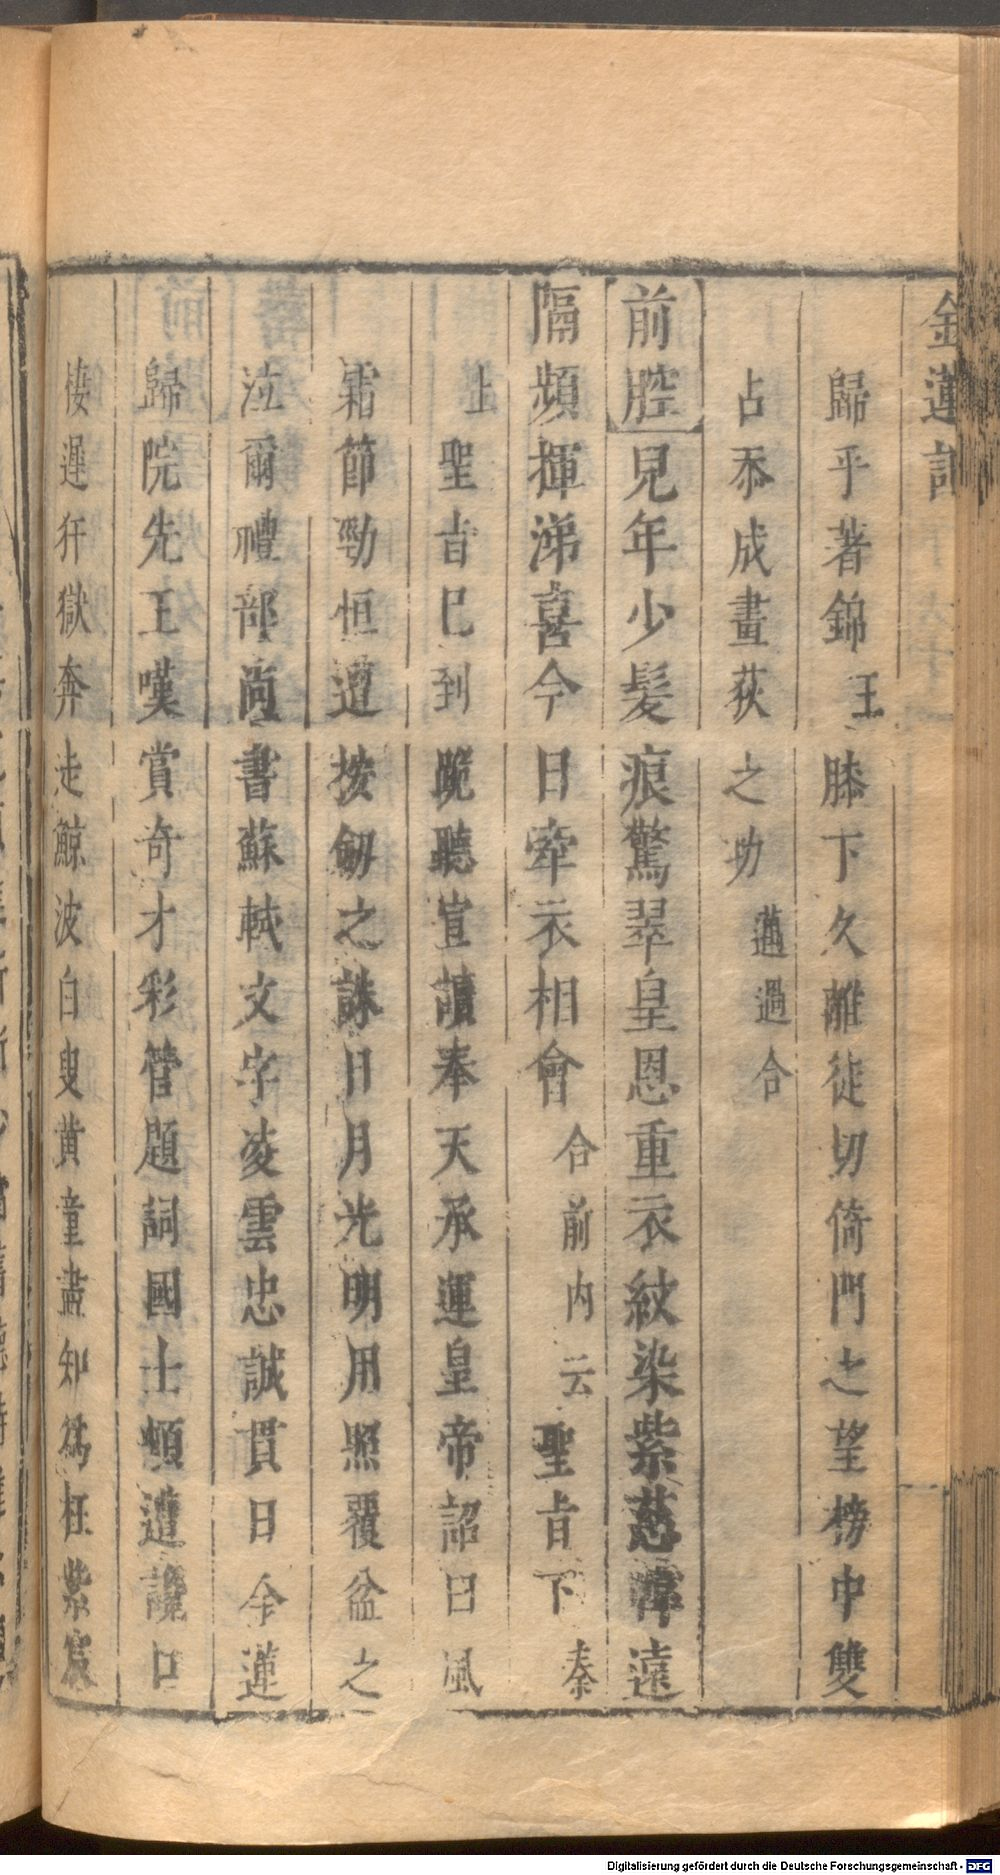 金蓮記
歸乎著錦王膝下久離徒切倚門之望榜中雙
占忝成畫荻之功 邁過合
前腔 兒年少髮痕驚翠皇恩重衣紋染紫慈幃遠
隔頻揮涕喜今日牽衣相會 合前內云 聖旨下 秦
上 聖旨已到跪聽宣讀奉天承運皇帝詔曰風
霜節勁恒遭按劒之誅日月光明用照覆盆之
泣爾禮部尙書蘇軾文字凌雲忠誠貫日今蓮
歸院先王嘆賞奇才彩管題詞國士頓遭讒口
棲遲犴獄奔走鯨波白叟黃童盡知爲枉紫宸
Digitalisierung gefördert durch die Deutsche Forschungsgemeinschaft - DFG